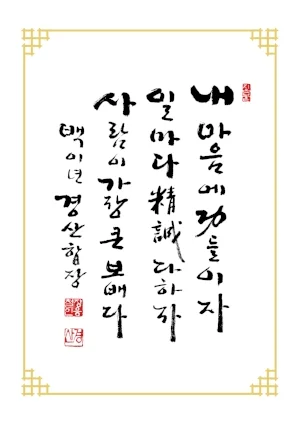 내 마음에 功들이자
일마다 精誠 다하자
사람이 가장 큰 보배다
백이년 경산합장